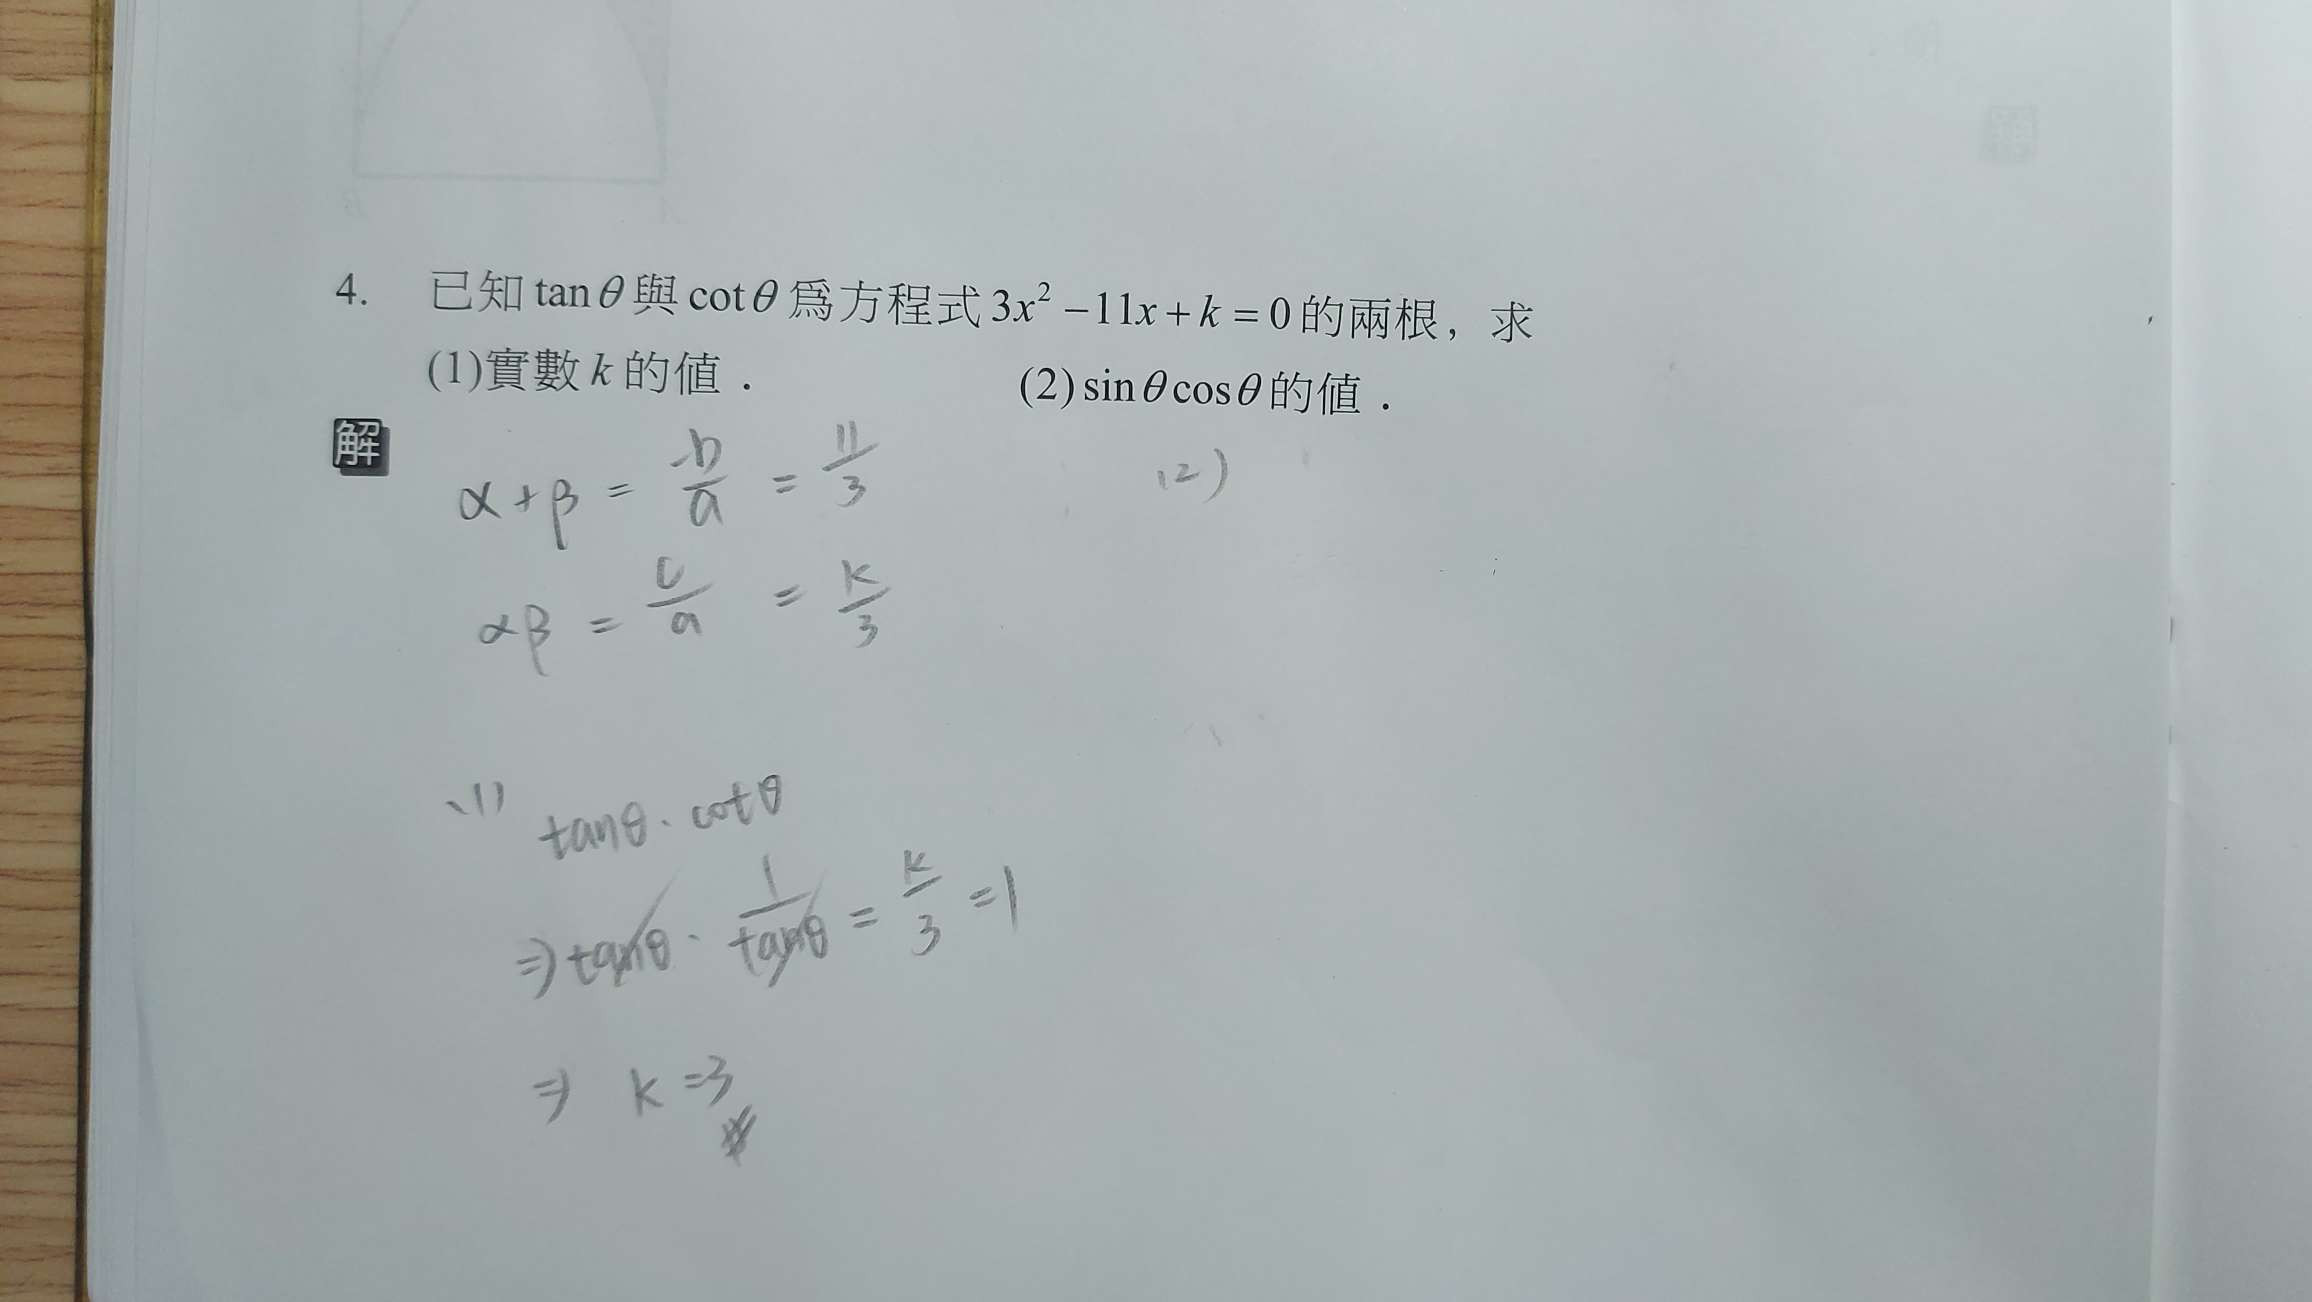 4. 已知 tanθ 與 cotθ 為方程式 3x² −11x + k = 0 的兩根，求
(1)實數 k 的值． (2) sinθcosθ 的值．
解
α + β = -b/a = 11/3
(2)
αβ = c/a = k/3
(1) tanθ · cotθ
⇒ tanθ · 1/tanθ = k/3 = 1
⇒ k = 3